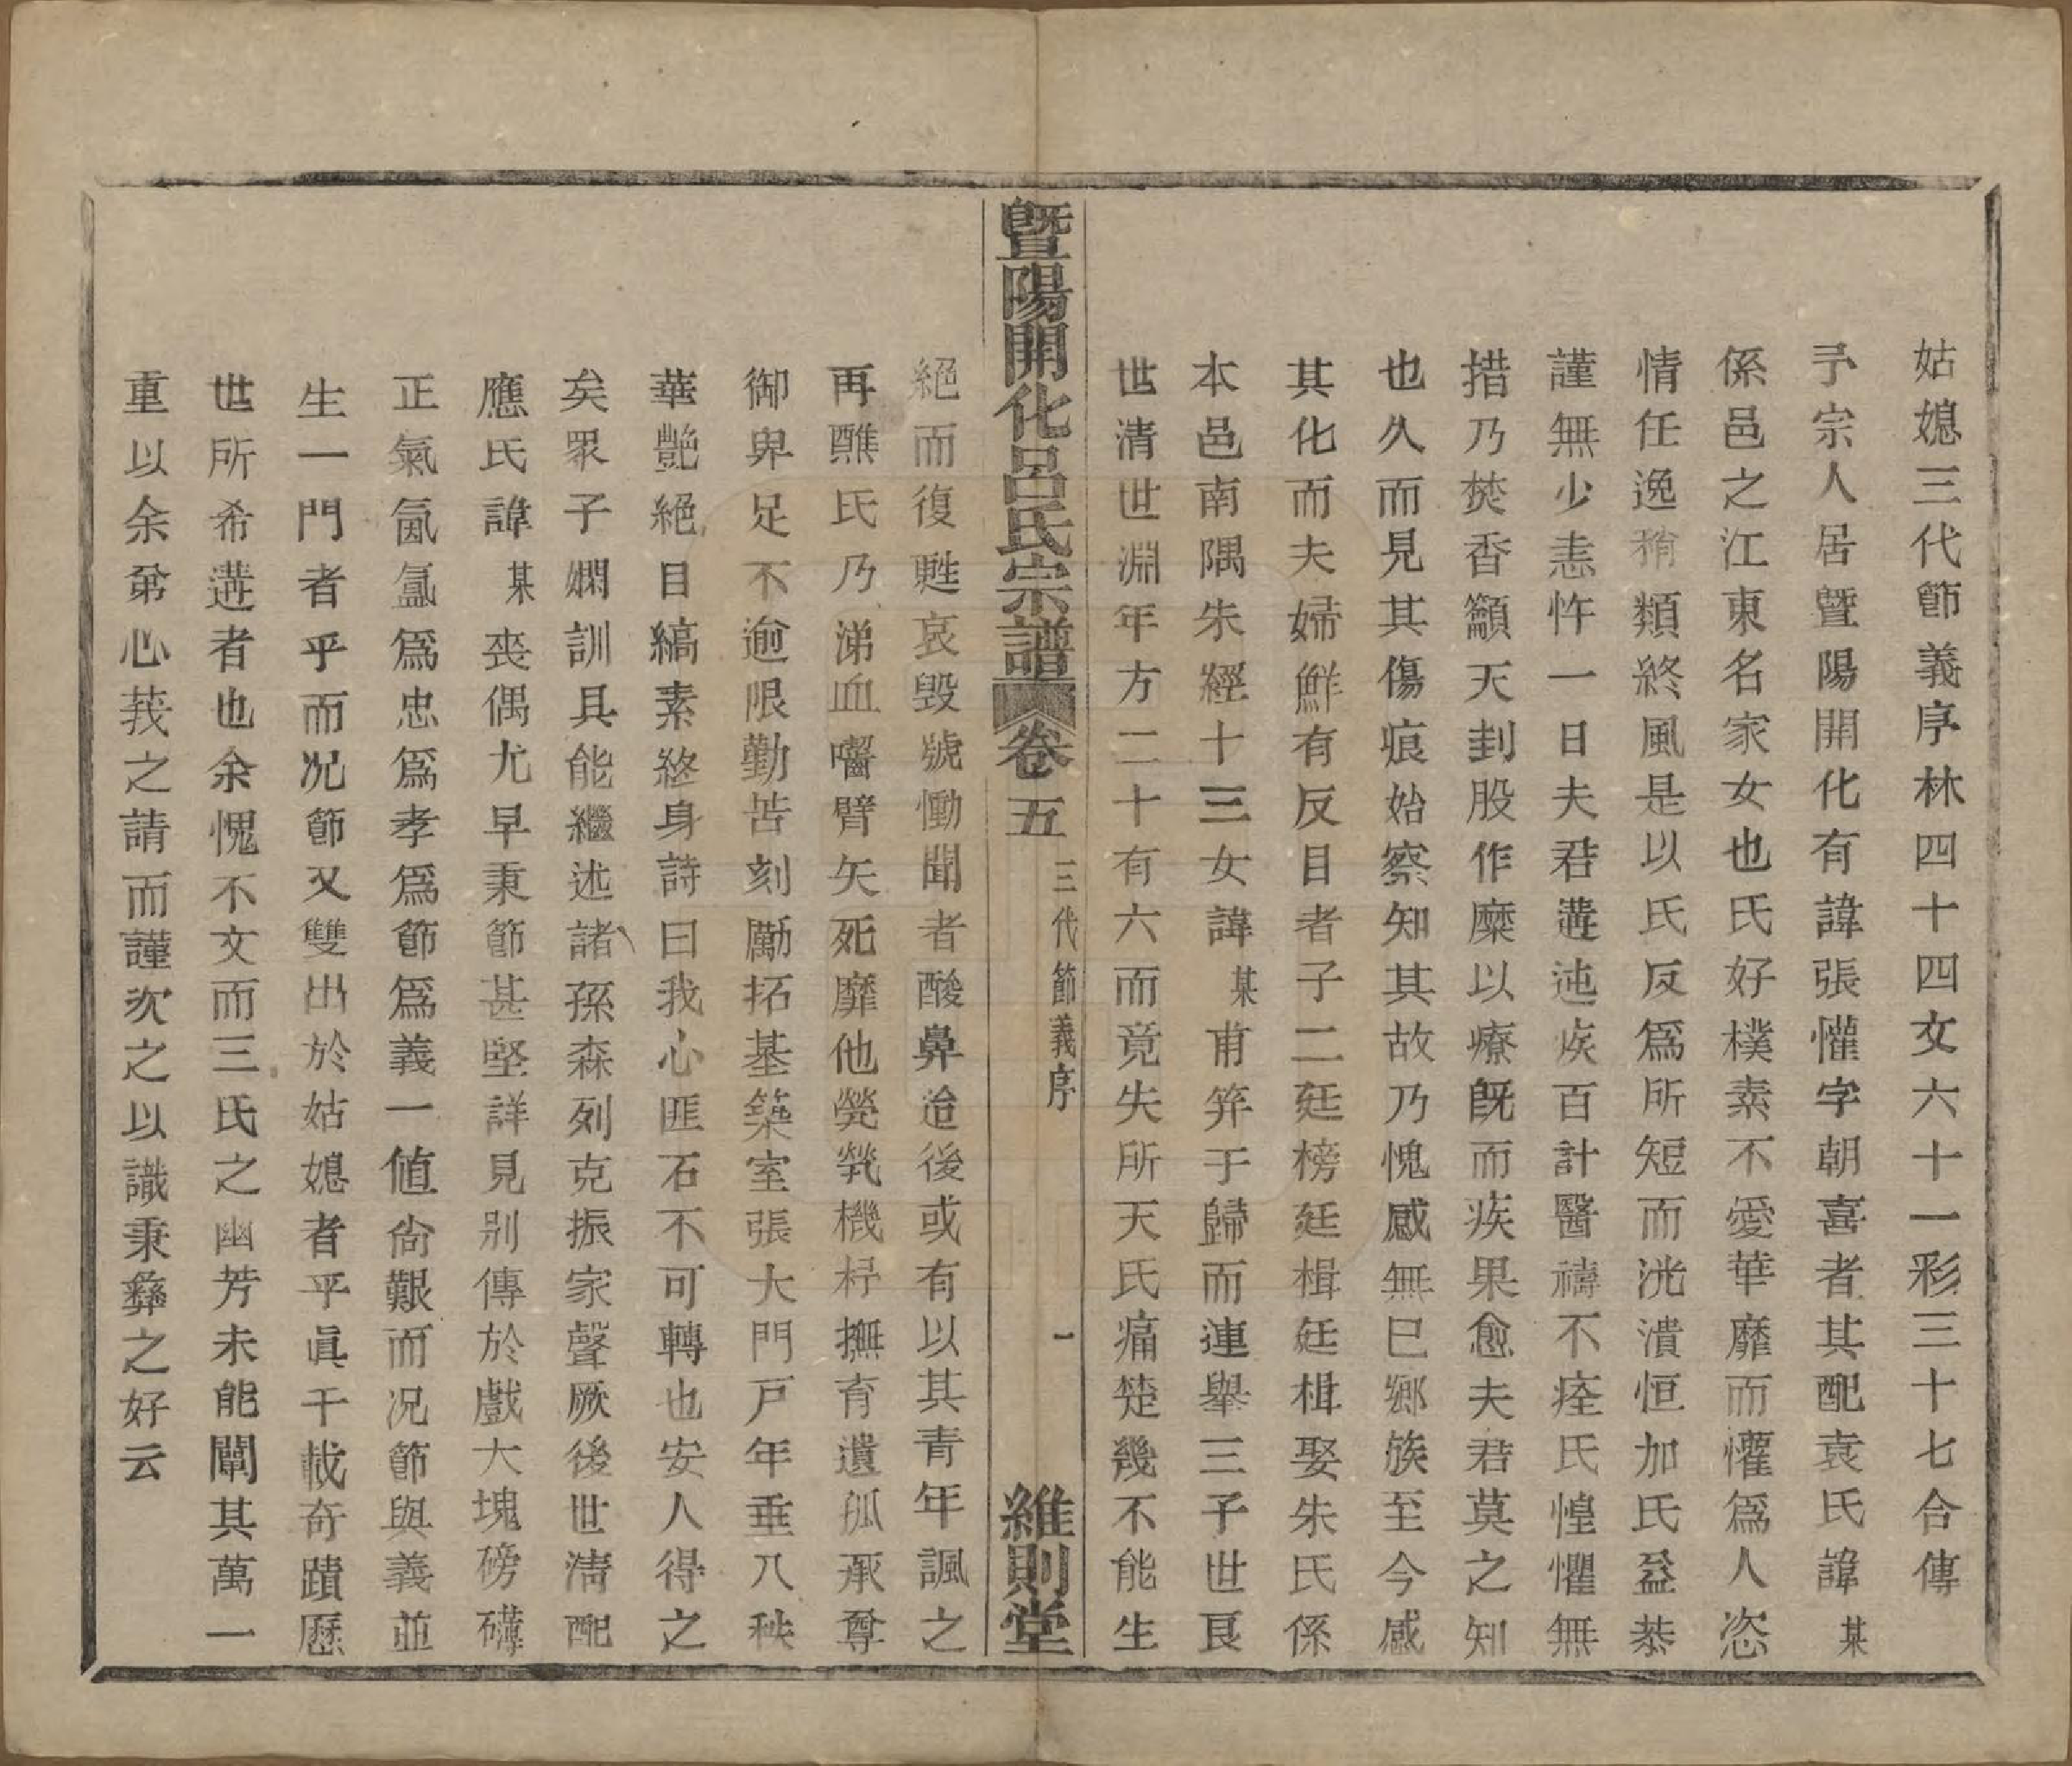 姑媳三代節義序林四十四文六十一彩三十七合傳
予宗人居曁陽開化有諱張懽字朝喜者其配袁氏諱某
係邑之江東名家女也氏好樸素不愛華靡而懽爲人恣
情任逸稍類終風是以氏反爲所短而洸潰恒加氏益恭
謹無少恚忤一日夫君遘迍疾百計醫禱不痊氏惶懼無
措乃焚香籲天刲股作糜以療旣而疾果愈夫君莫之知
也久而見其傷痕始察知其故乃愧感無已鄉族至今感
其化而夫婦鮮有反目者子二廷榜廷楫廷楫娶朱氏係
本邑南隅朱經十三女諱某甫笄于歸而連舉三子世良
世清世淵年方二十有六而竟失所天氏痛楚幾不能生
曁陽開化呂氏宗譜 卷五 三代節義序 一 維則堂
絕而復甦哀毀號慟聞者酸鼻迨後或有以其青年諷之
再醮氏乃涕血嚙臂矢死靡他煢煢機杼撫育遺孤承尊
御卑足不逾限勤苦刻勵拓基築室張大門戸年垂八秩
華艷絕目縞素終身詩曰我心匪石不可轉也安人得之
矣眾子嫻訓具能繼述諸孫森列克振家聲厥後世清配
應氏諱某喪偶尤早秉節甚堅詳見别傳於戲大塊磅礴
正氣氤氳爲忠爲孝爲節爲義一値尙艱而况節與義並
生一門者乎而况節又雙出於姑媳者乎眞千載奇蹟歷
世所希遘者也余愧不文而三氏之幽芳未能闡其萬一
重以余弟心莪之請而謹次之以識秉彝之好云